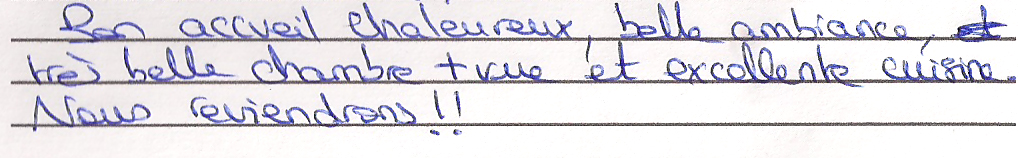 Bon accueil chaleureux, belle ambiance,
très belle chambre + vue et excellente cuisine.
Nous reviendrons !!